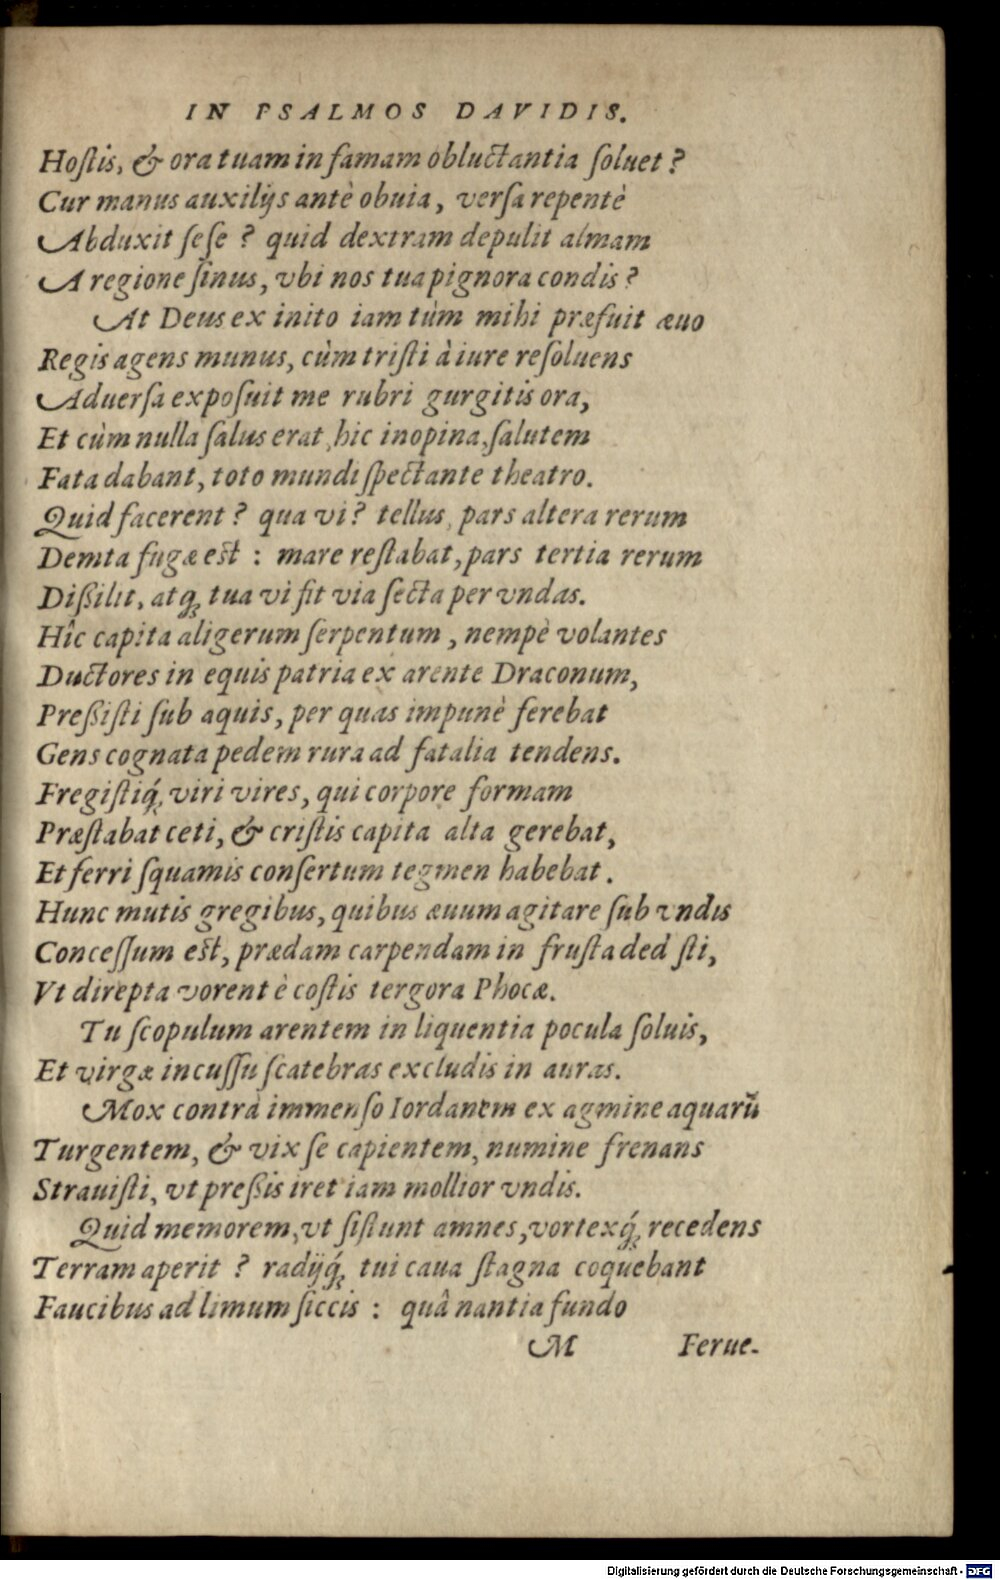 IN PSALMOS DAVIDIS.
Hoſtis, & ora tuam in famam obluctantia ſoluet?
Cur manus auxilijs antè obuia, verſa repentè
Abduxit ſeſe? quid dextram depulit almam
A regione ſinus, vbi nos tua pignora condis?
At Deus ex inito iam tùm mihi præfuit æuo
Regis agens munus, cùm triſti à iure reſoluens
Aduerſa expoſuit me rubri gurgitis ora,
Et cùm nulla ſalus erat, hic inopina, ſalutem
Fata dabant, toto mundi ſpectante theatro.
Quid facerent? qua vi? tellus, pars altera rerum
Demta fugæ eſt: mare reſtabat, pars tertia rerum
Dißilit, atq́ꝫ tua vi fit via ſecta per vndas.
Hîc capita aligerum ſerpentum, nempè volantes
Ductores in equis patria ex arente Draconum,
Preßiſti ſub aquis, per quas impunè ferebat
Gens cognata pedem rura ad fatalia tendens.
Fregiſtiq́ꝫ viri vires, qui corpore formam
Præſtabat ceti, & criſtis capita alta gerebat,
Et ferri ſquamis conſertum tegmen habebat.
Hunc mutis gregibus, quibus æuum agitare ſub vndis
Conceſſum eſt, prædam carpendam in fruſta ded ſti,
Vt direpta vorent è coſtis tergora Phocæ.
Tu ſcopulum arentem in liquentia pocula ſoluis,
Et virgæ incuſſu ſcatebras excludis in auras.
Mox contrà immenſo Iordanem ex agmine aquarũ
Turgentem, & vix ſe capientem, numine frenans
Strauiſti, vt preßis iret iam mollior vndis.
Quid memorem, vt ſiſtunt amnes, vortexq́ꝫ recedens
Terram aperit? radijq́ꝫ tui caua ſtagna coquebant
Faucibus ad limum ſiccis: quâ nantia fundo
M Ferue-
Digitalisierung gefördert durch die Deutsche Forschungsgemeinschaft - DFG